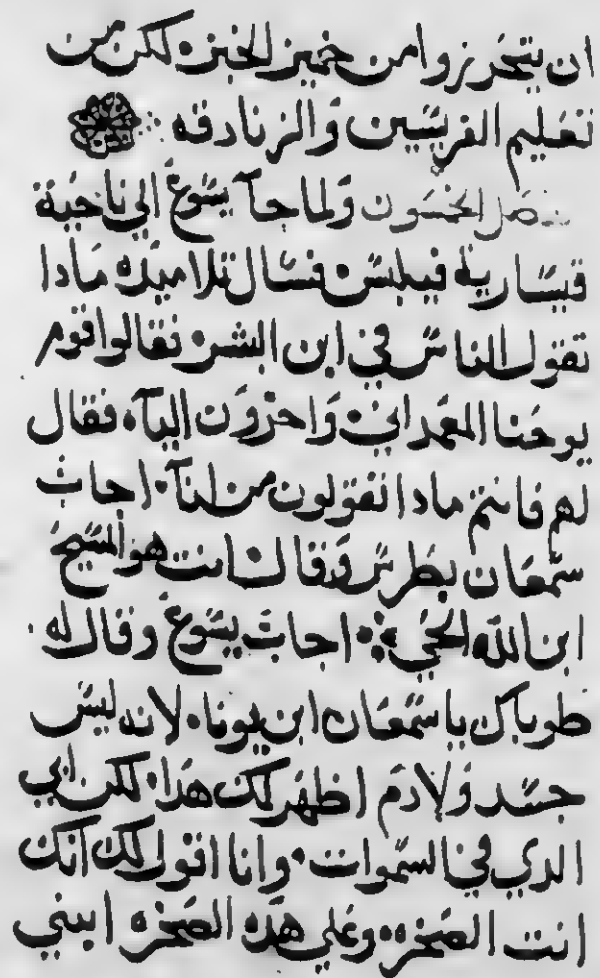 ان يتحرزوا من خمير الخبز لكن من
تعليم الفريسيين والزنادقه
فصل الخمسون ولما جآ يسوع الي ناحية
قيسارية فيلبس فسال تلاميده مادا
تقول الناس في ابن البشر فقالوا قوم
يوحنا المعمداني واخرون اليآه فقال
لهم فانتم مادا تقولون من انآ اجاب
سمعان بطرس وقال انت هو المسيح
ابن الله الحي اجاب يسوع وقال له
طوباك يا سمعان ابن يونا لانه ليس
جسد ولادم اظهر لك هدا لكن ابي
الدي في السموات وانا اقول لك انك
انت الصخره وعلي هده الصخره ابني